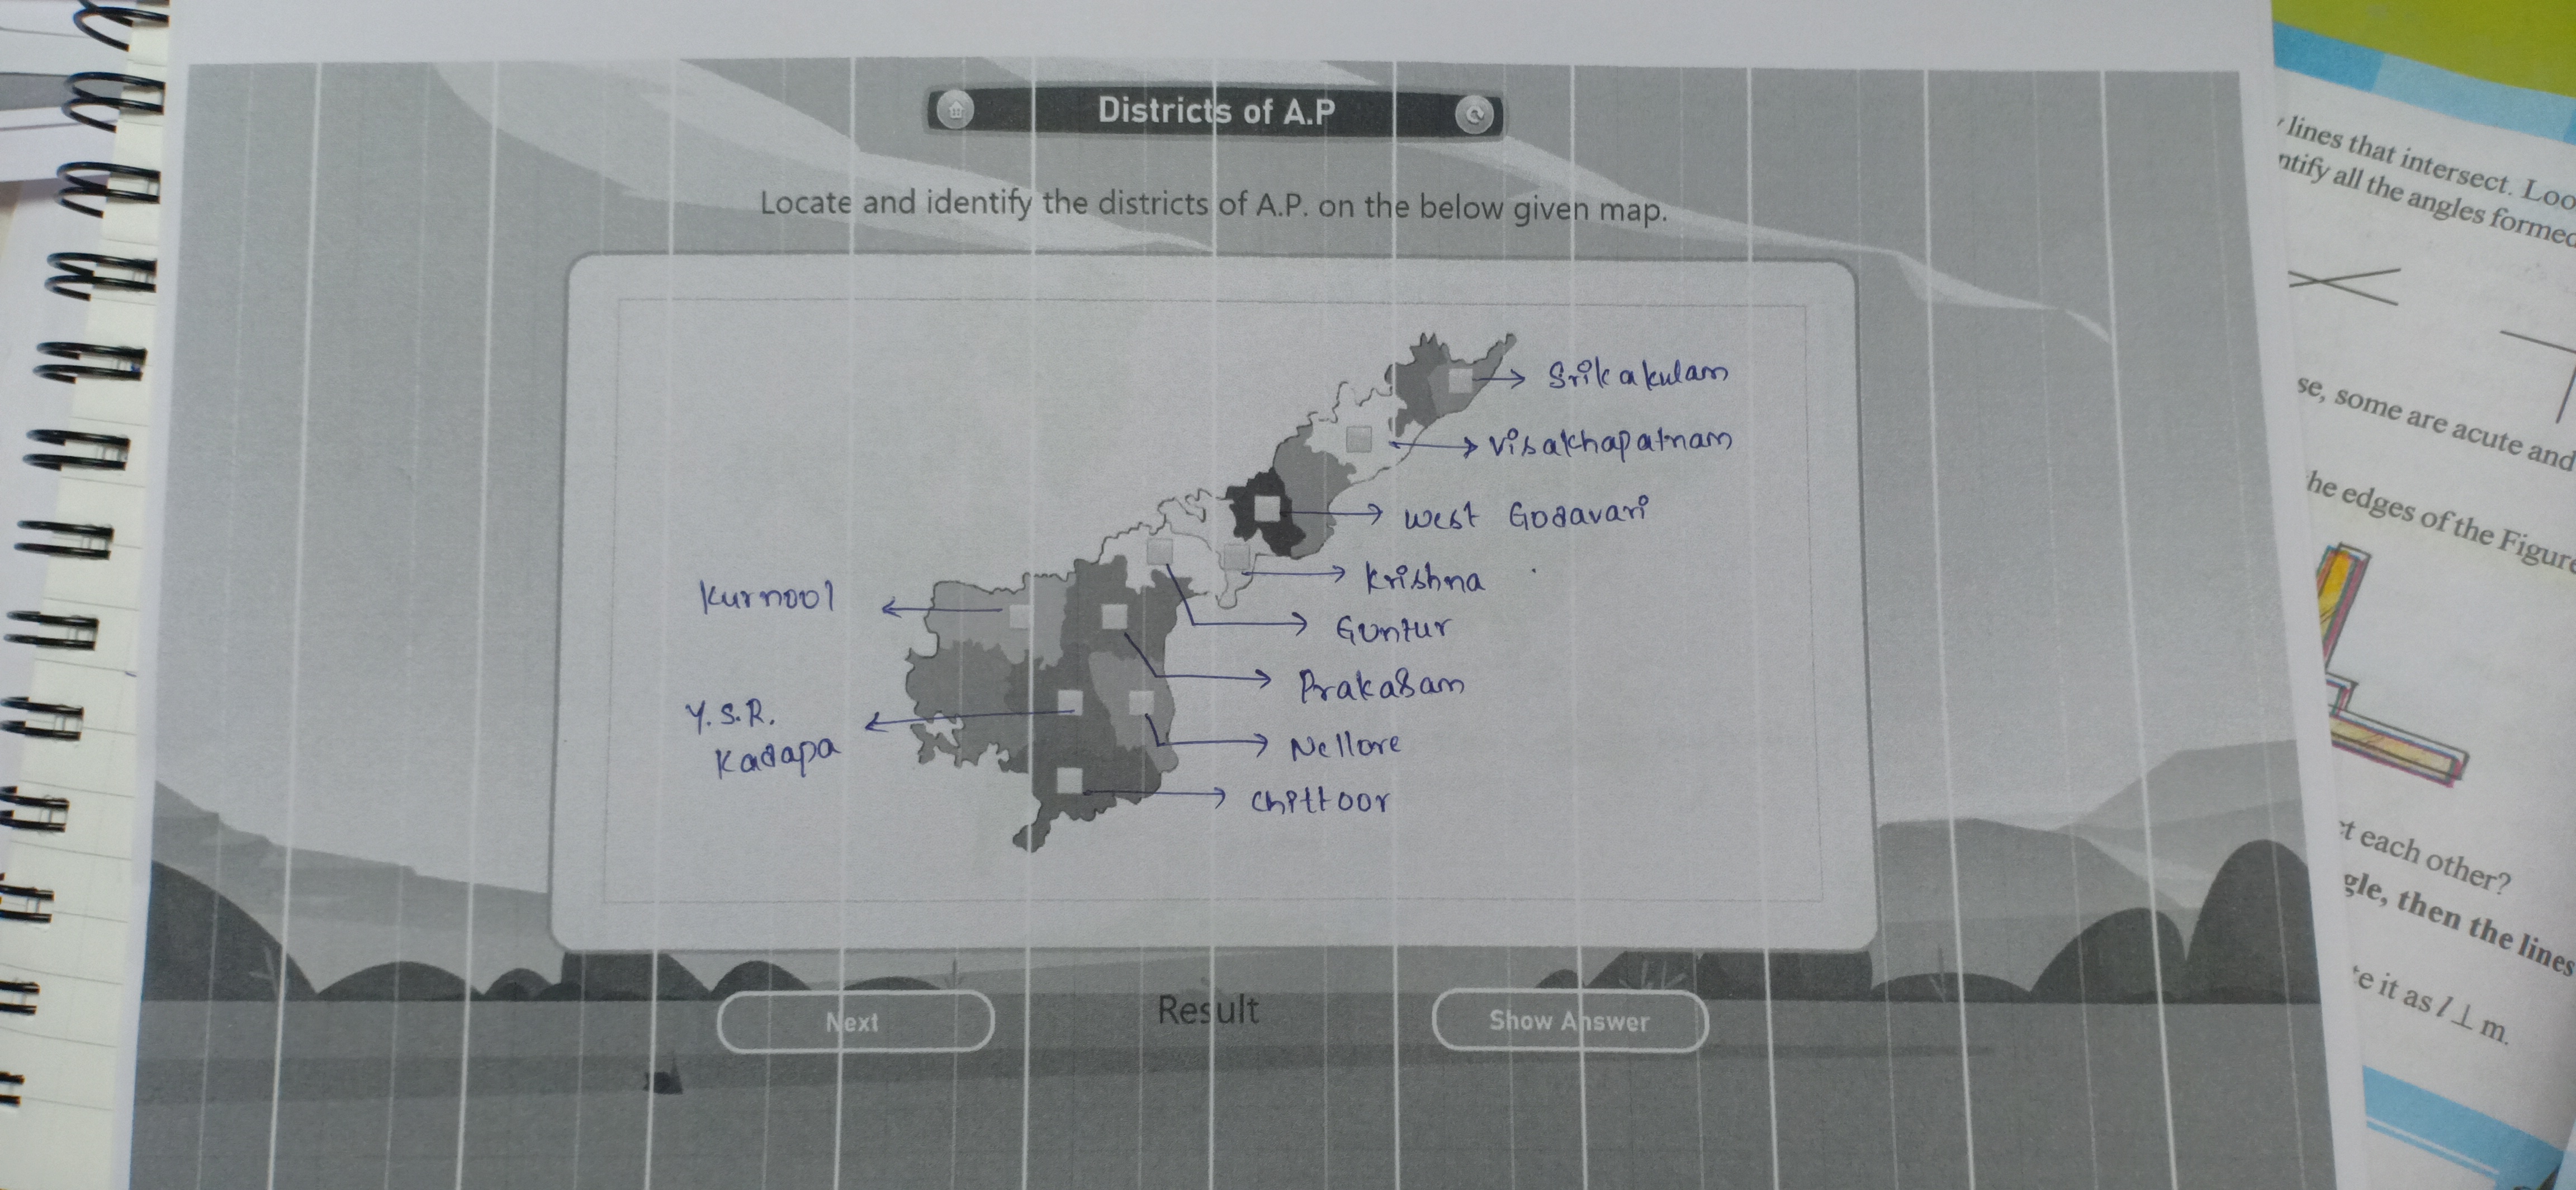 Districts of A.P
Locate and identify the districts of A.P. on the below given map.
Srikakulam
Visakhapatnam
West Godavari
Krishna
Guntur
Prakasam
Nellore
Chittoor
Kurnool
Y.S.R.
Kadapa
Next
Result
Show Answer
lines that intersect. Loo
ntify all the angles formed
se, some are acute and
he edges of the Figure
t each other?
gle, then the lines
e it as l ⊥ m.